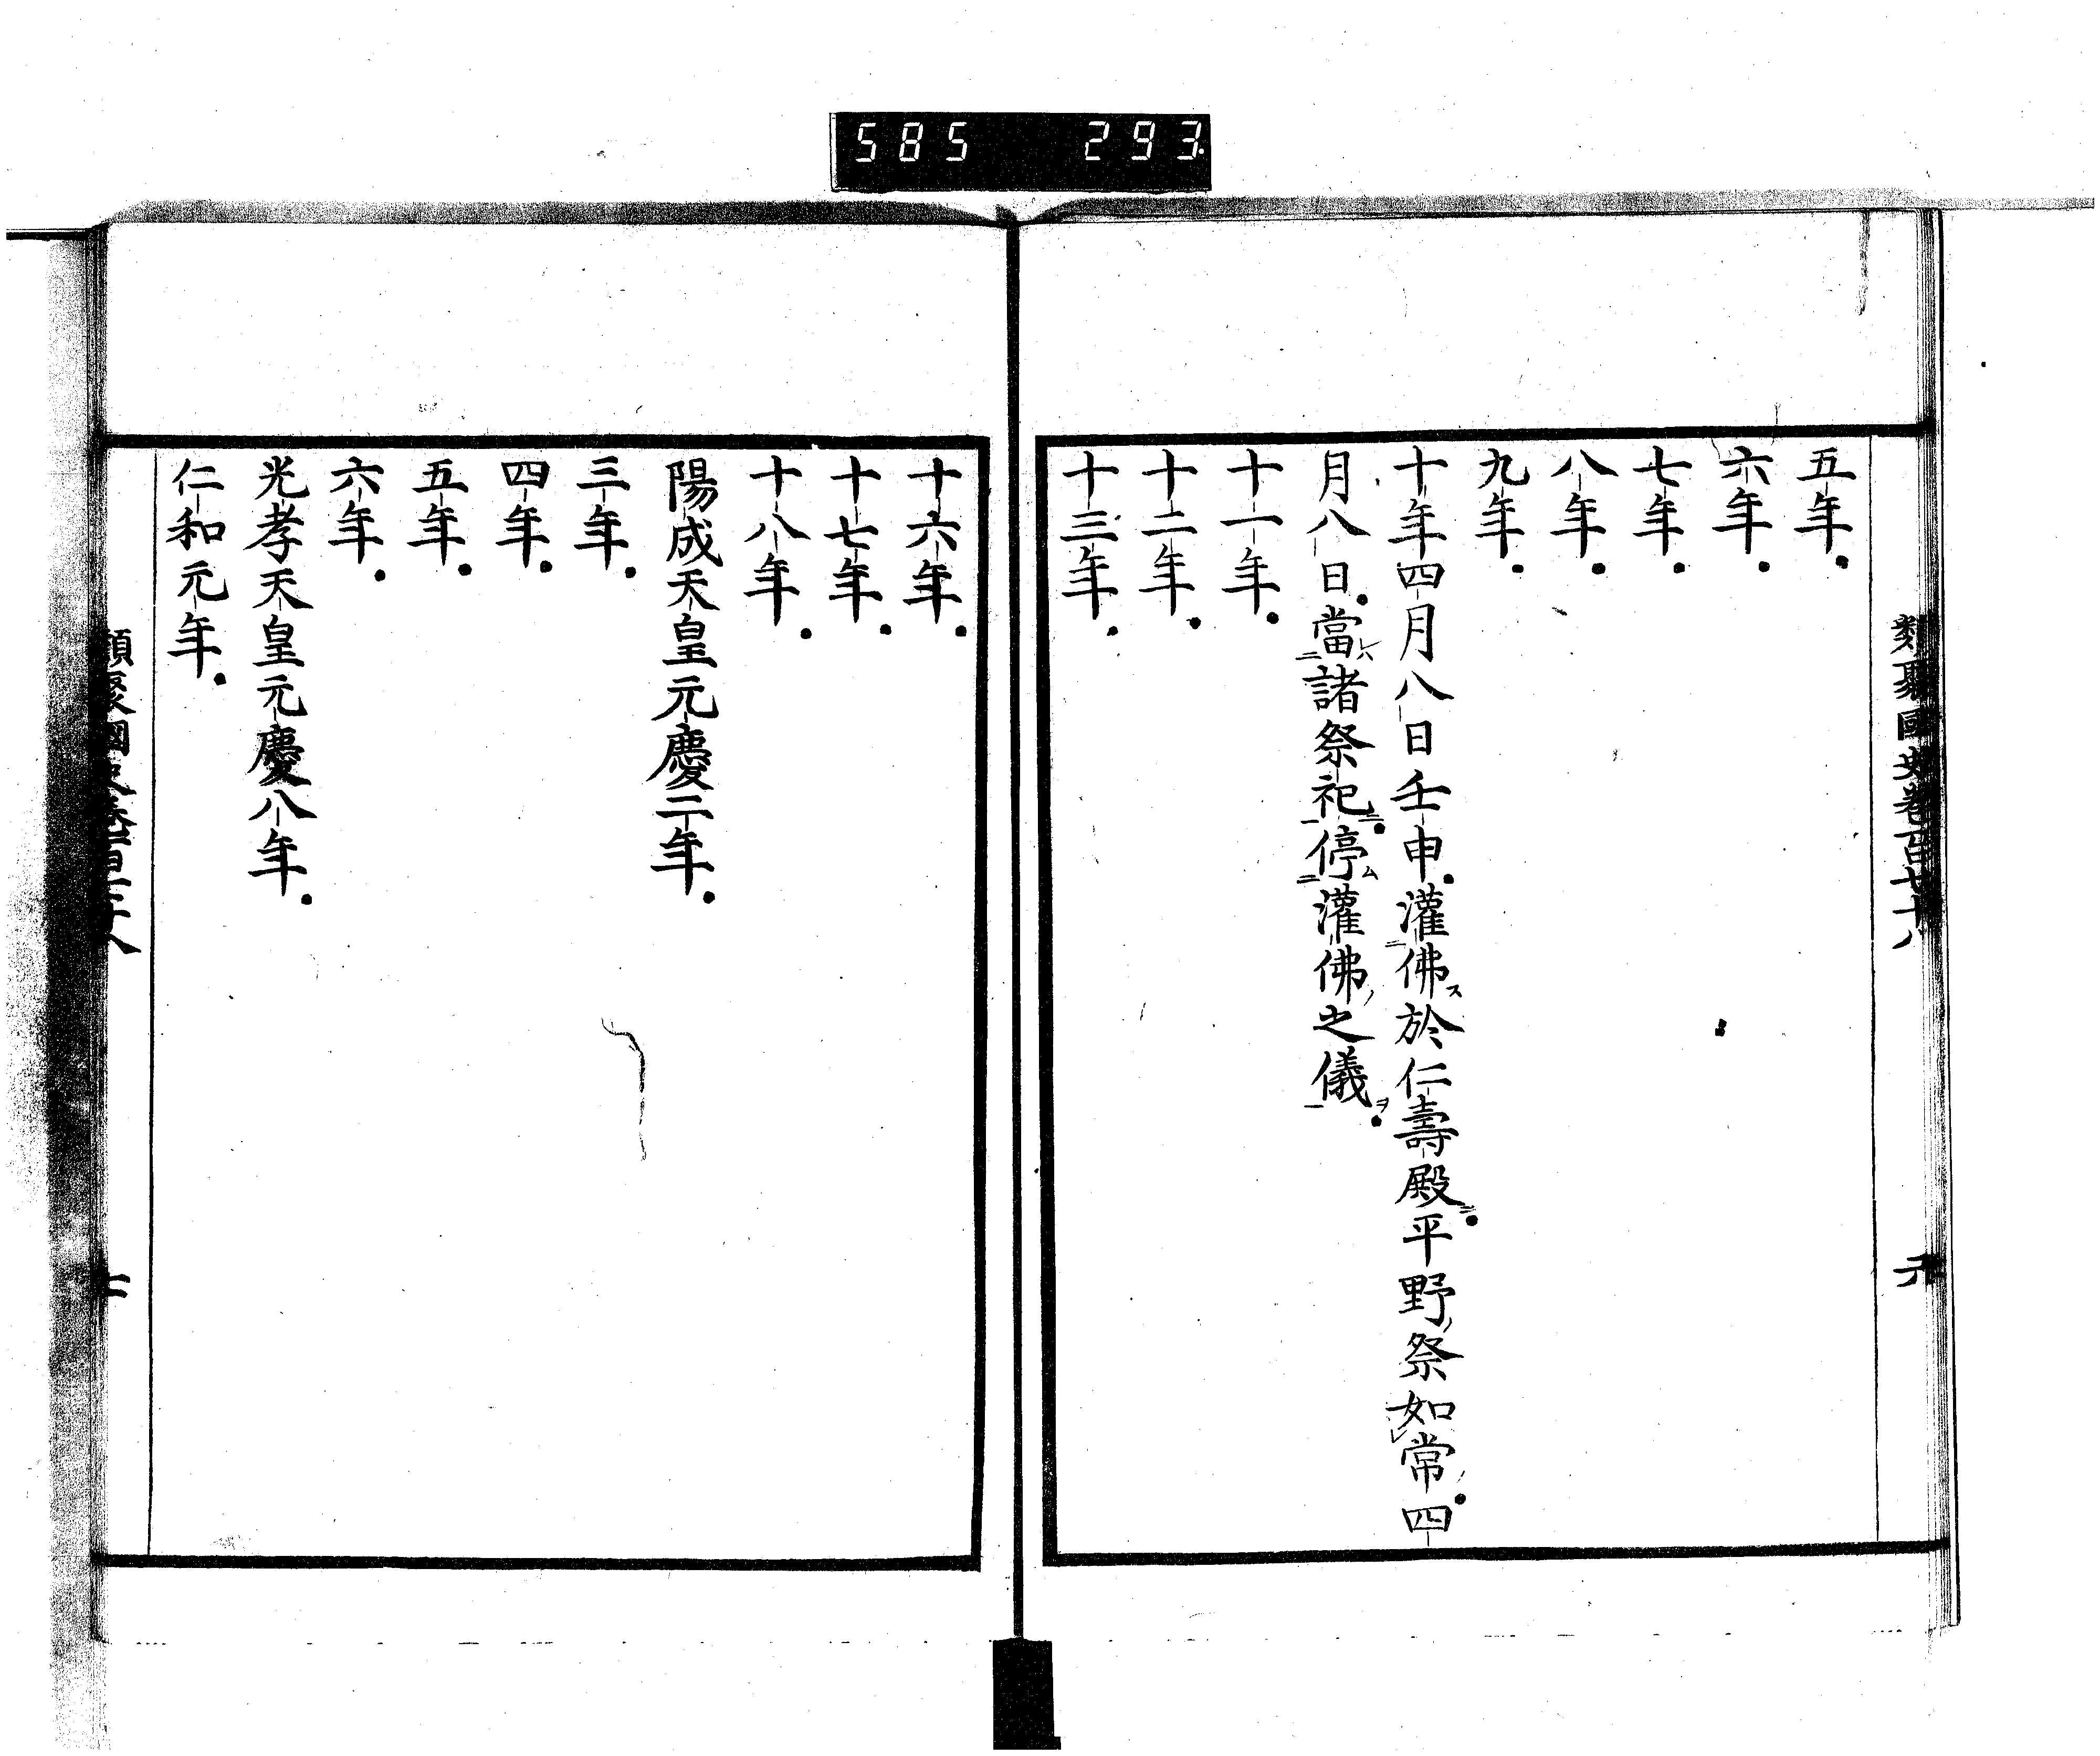 585 293
五年
六年
七年
八年
九年
十年四月八日壬申灌佛於仁壽殿平野祭如常四
月八日當諸祭祀停灌佛之儀
十一年
十二年
十三年
十六年
十七年
十八年
陽成天皇元慶二年
三年
四年
五年
六年
光孝天皇元慶八年
仁和元年
類聚國史卷百七十八